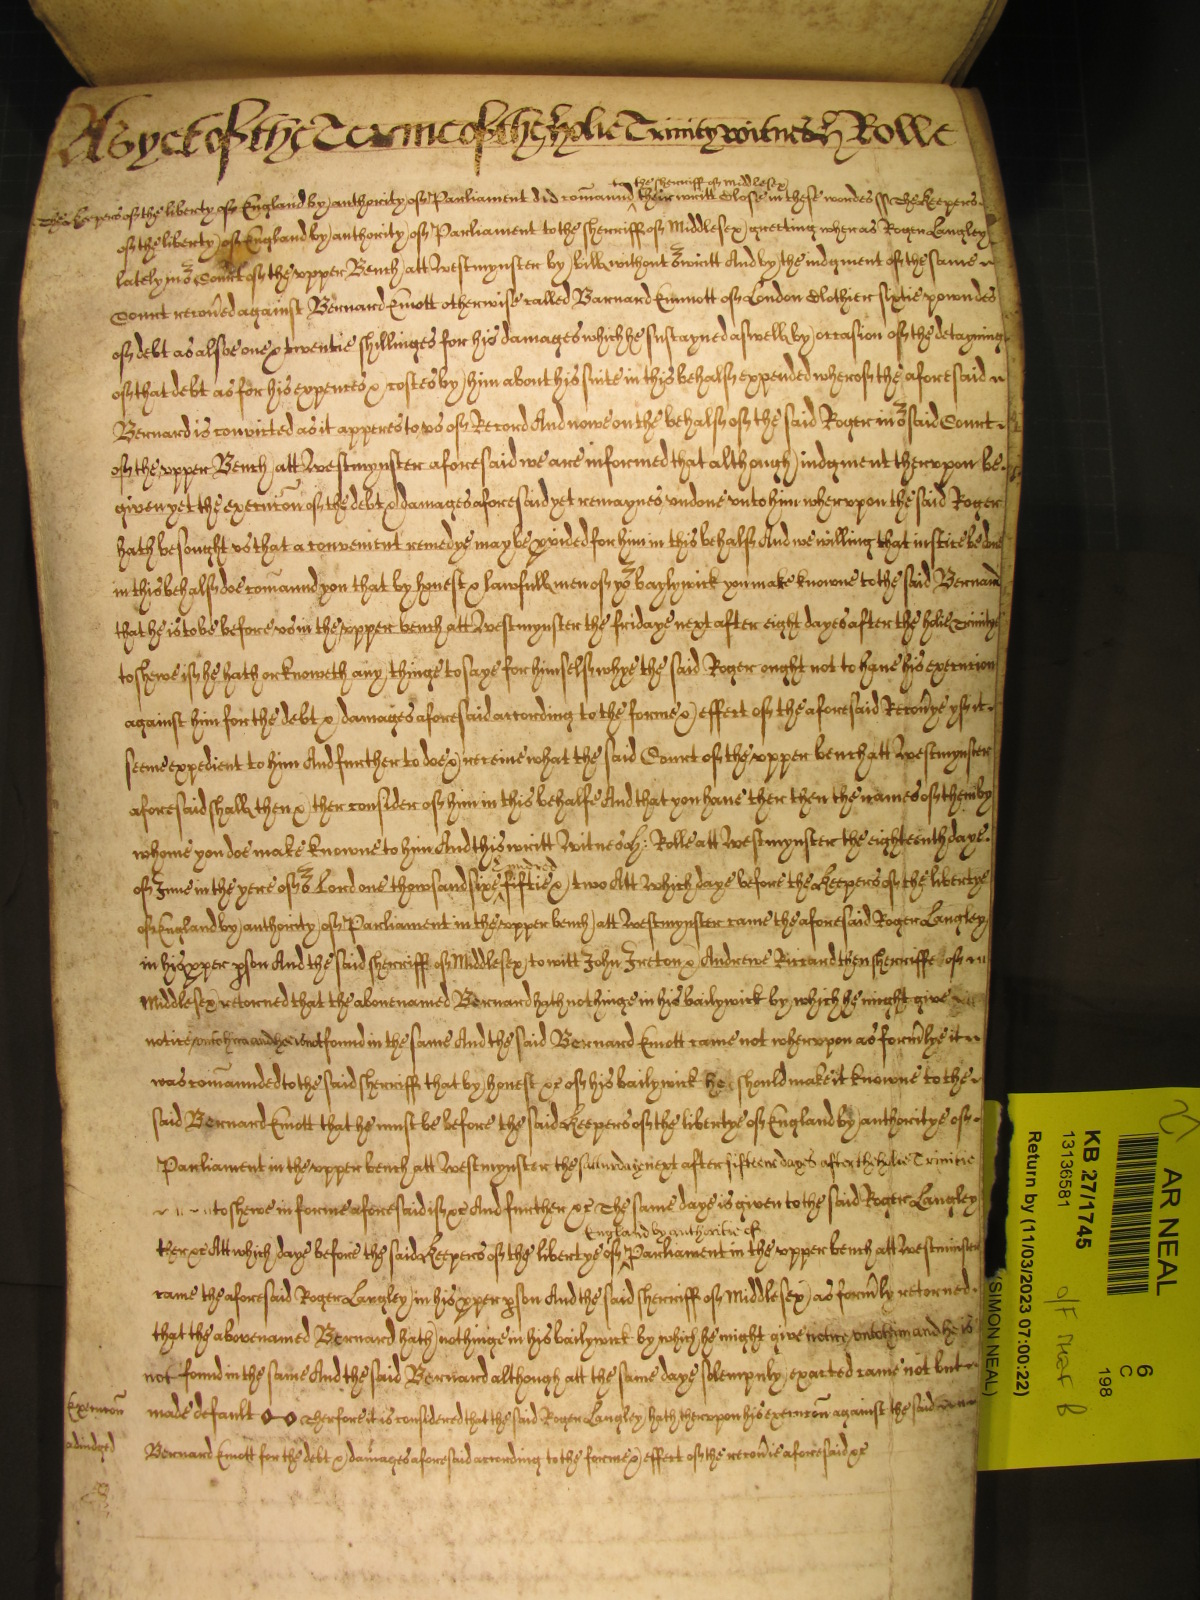 As yet of the Terme of the holie Trinity witnes H Rolle
to the sherriff of Middlesex
The keepers of the liberty of England by authority of Parliament did comaund their writt Close in these wordes ss The keepers
of the liberty of England by authority of Parliament to the sherriff of Middlesex greeting wheras Roger Langley
lately in or Court of the upper Bench att Westmynster by bill without or writt And by the iudgment of the same
Court recoved against Bernard Emott otherwise called Barnard Emmott of London Clothier sixtie powndes
of debt as alsoe one & twentie shillinges for his damages which he sustayned aswell by occasion of the detayning
of that debt as for his expences & costes by him about his suite in this behalf expended wherof the aforesaid
Bernard is convicted as it apperes to us of Record And nowe on the behalf of the said Roger in or said Court
of the upper Bench att Westmynster aforesaid we are informed that although iudgment therupon be
given yet the execucon of the debt & damages aforesaid yet remaynes undone unto him wherupon the said Roger
hath besought us that a convenient remedye may be pvided for him in this behalf And we willing that iustice be done
in this behalf doe comaund you that by honest & lawfull men of yor baylywick you make knowne to the said Bernard
that he is to be before us in the upper bench att Westmynster the fridaye next after eight dayes after the holie Trinitye
to shewe if he hath or knoweth any thinge to saye for himself whye the said Roger ought not to have his execution
against him for the debt & damages aforesaid according to the forme & effect of the aforesaid Recovye yf it
seeme expedient to him And further to doe & receive what the said Court of the upper bench att Westmynster
aforesaid shall then & ther consider of him in this behalfe And that you have ther then the names of them by
whome you doe make knowne to him And this writt Witnes H: Rolle att Westmynster the eighteenth daye
hundred
of June in the yere of or Lord one thowsand sixe fiftie & two Att which daye before the Keepers of the libertye
of England by authority of Parliament in the upper bench att Westmynster came the aforesaid Roger Langley
in his pper pson And the said sherriff of Middlesex to witt John Ireton & Andrewe Riccard then sherriffe of
Middlesex retorned that the abovenamed Bernard hath nothinge in his bailywick by which he might give
notice unto him and he is not found in the same And the said Bernard Emott came not wherupon as formlye it
was comaunded to the said sherriff that by honest &c of his bailywick he should make it knowne to the
said Bernard Emott that he must be before the said Keepers of the libertye of England by authoritye of
Parliament in the upper bench att Westmynster the saturdaie next after fifteene dayes after the holie Trinitie
to shewe in forme aforesaid if &c And further &c The same daye is given to the said Roger Langley
England by authoritie of
ther &c Att which daye before the said Keepers of the libertye of Parliament in the upper bench att Westminster
came the aforesaid Roger Langley in his pper pson And the said sherriff of Middlesex as formly retorned
that the abovenamed Bernard hath nothinge in his bailywick by which he might give notice unto him and he is
not found in the same And the said Bernard although att the same daye solempnly exacted came not but
made default Therfore it is considered that the said Roger Langley hath therupon his execucon against the said
Bernard Emott for the debt & damages aforesaid according to the forme & effect of the recovie aforesaid &c
Execucon
adiudged
AR NEAL
6
C
198
KB 27/1745
13136581
Return by (11/03/2023 07:00:22)
(SIMON NEAL)